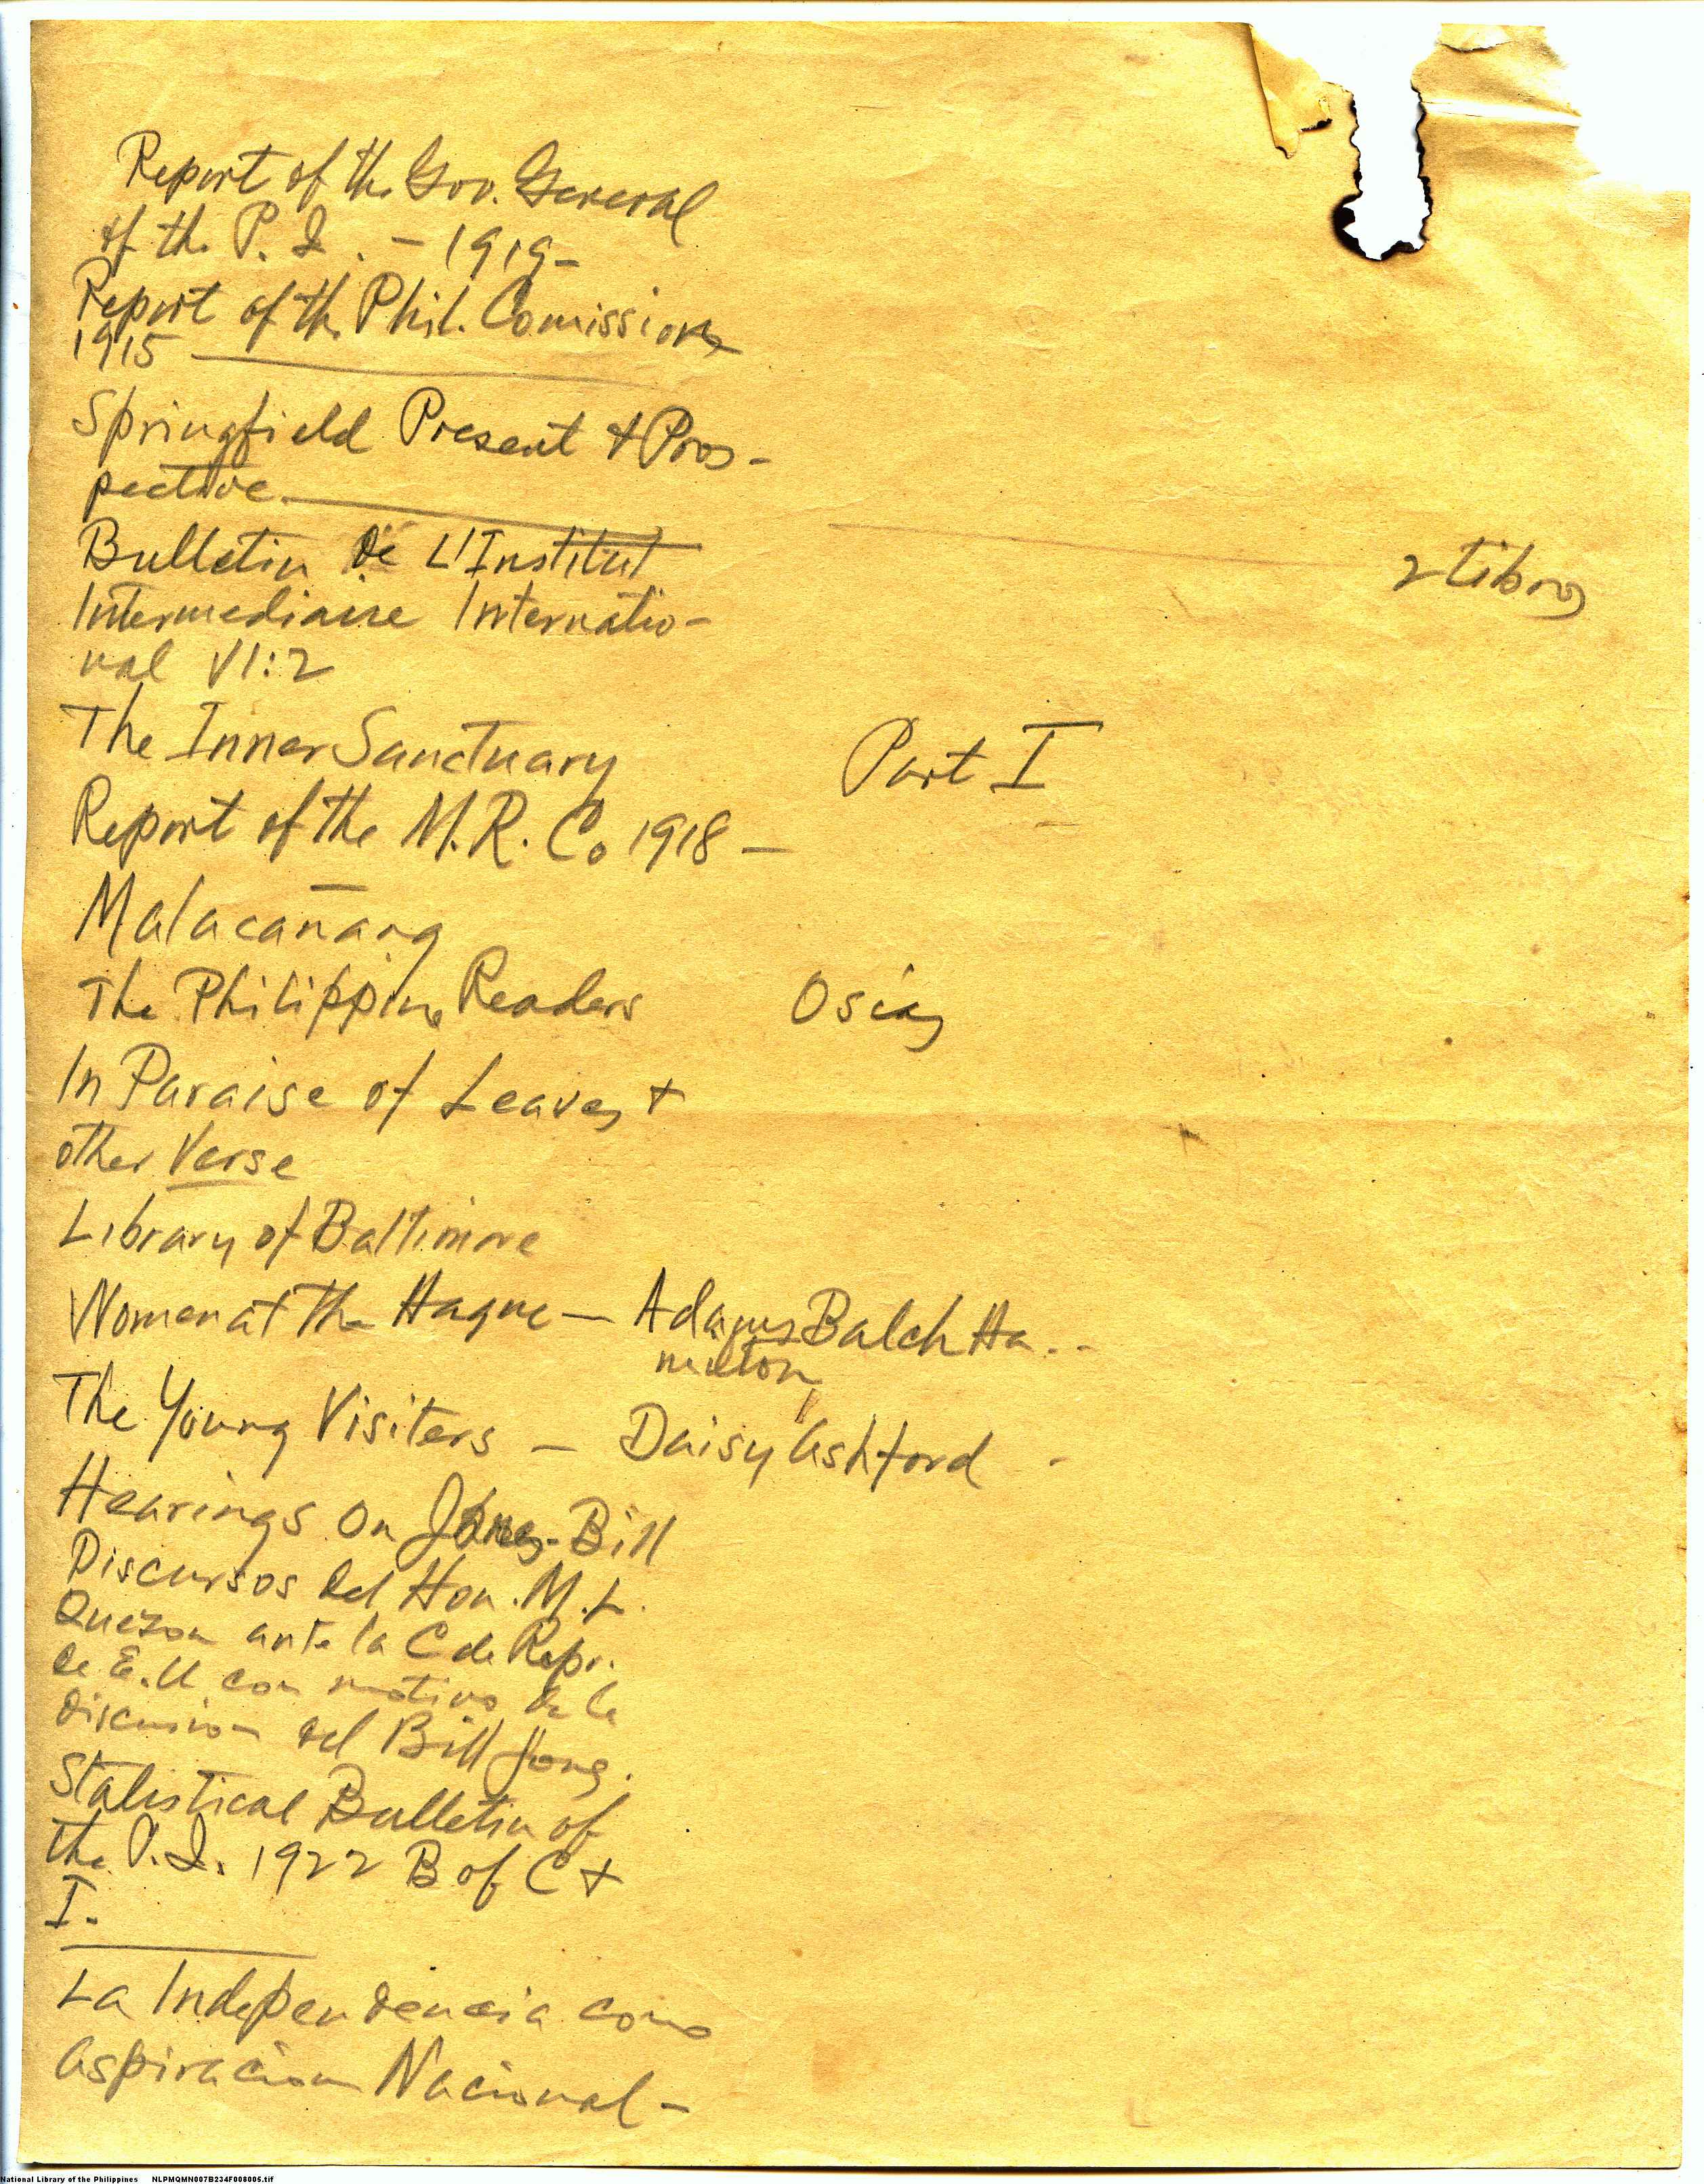 Report of the Gov. General
of the P. I. - 1919 -
Report of the Phil. Comission
1915
Springfield Present & Pros-
pective.
Bulletin de L'Institut
2 libros
Intermediaire Internatio-
nal VI:2
The Inner Sanctuary Part I
Report of the M.R. Co 1918 -
Malacañang
The Philippine Readers Osias
In Paraise of Leaves &
other Verse
Library of Baltimore
Women at the Hague - Adams Balch Ha..
milton
The Young Visiters - Daisy Ashford -
Hearings on Jones-Bill
Discursos del Hon. M.L.
Quezon ante la C de Repr.
de E.U con motivo de la
discusion del Bill Jones.
Statistical Bulletin of
the P.I. 1922 B of C &
I.
La Independencia como
Aspiracion Nacional -
National Library of the Philippines NLPMQMN007B234F008005.tif